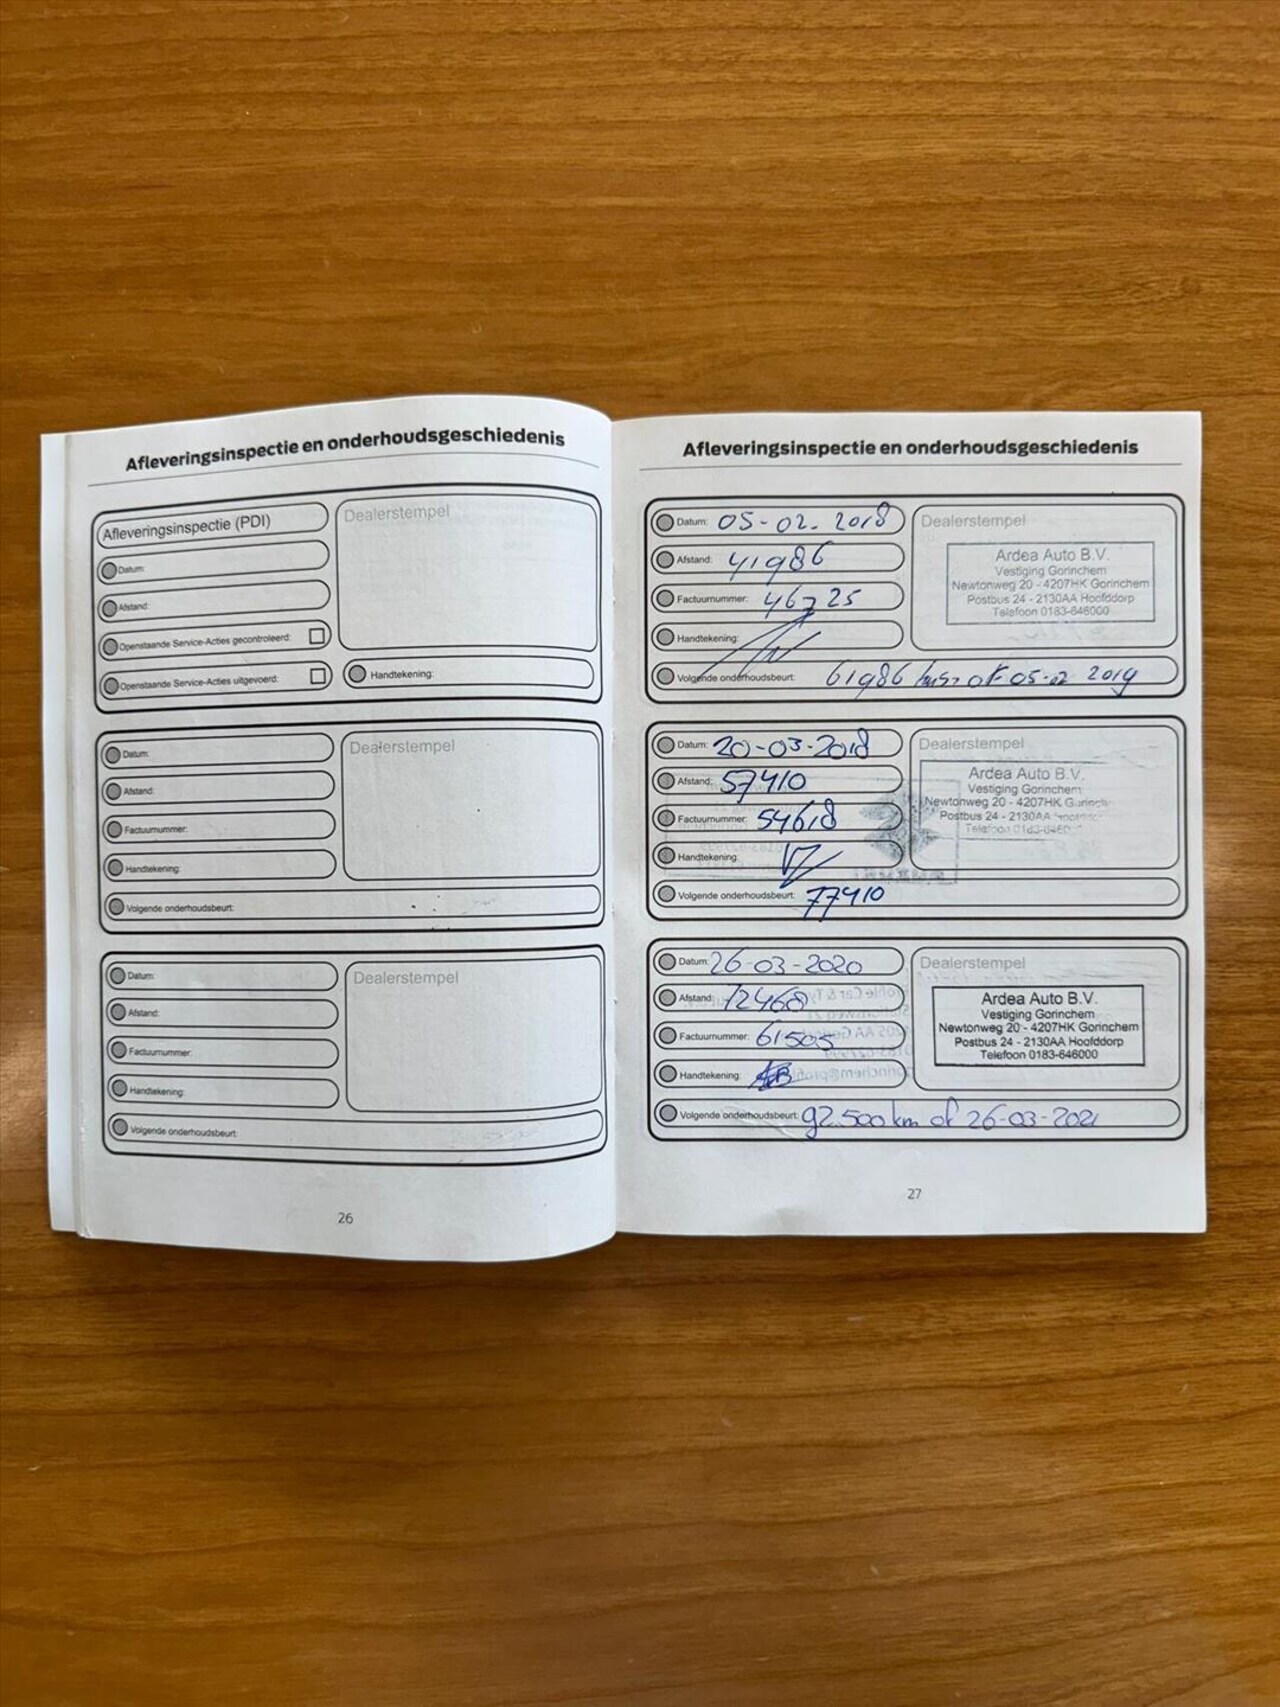 Afleveringsinspectie en onderhoudsgeschiedenis
Afleveringsinspectie (PDI)
Dealerstempel
Datum:
Afstand:
Openstaande Service-Acties gecontroleerd:
Openstaande Service-Acties uitgevoerd:
Handtekening:
Datum:
Dealerstempel
Afstand:
Factuurnummer:
Handtekening:
Volgende onderhoudsbeurt:
Datum:
Dealerstempel
Afstand:
Factuurnummer:
Handtekening:
Volgende onderhoudsbeurt:
26
Afleveringsinspectie en onderhoudsgeschiedenis
Datum: 05-02-2018
Dealerstempel
Afstand: 41986
Factuurnummer: 46725
Handtekening:
Ardea Auto B.V.
Vestiging Gorinchem
Newtonweg 20 - 4207HK Gorinchem
Postbus 24 - 2130AA Hoofddorp
Telefoon 0183-646000
Volgende onderhoudsbeurt: 61986 of 05-02 2019
Datum: 20-03-2018
Dealerstempel
Afstand: 57410
Factuurnummer: 54618
Handtekening:
Ardea Auto B.V.
Vestiging Gorinchem
Newtonweg 20 - 4207HK
Postbus 24 - 2130AA
Telefoon
Volgende onderhoudsbeurt: 77410
Datum: 26-03-2020
Dealerstempel
Afstand: 72468
Factuurnummer: 61505
Handtekening:
Ardea Auto B.V.
Vestiging Gorinchem
Newtonweg 20 - 4207HK Gorinchem
Postbus 24 - 2130AA Hoofddorp
Telefoon 0183-646000
Volgende onderhoudsbeurt: 92.500 km of 26-03-2021
27